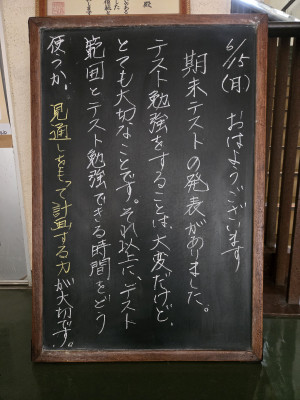 6/15(月) おはようございます
期末テストの発表がありました。
テスト勉強をすることは、大変だけど、
とても大切なことです。それ以上に、テスト
範囲とテスト勉強できる時間をどう
使うか。見通しをもって計画する力が大切です。
殿